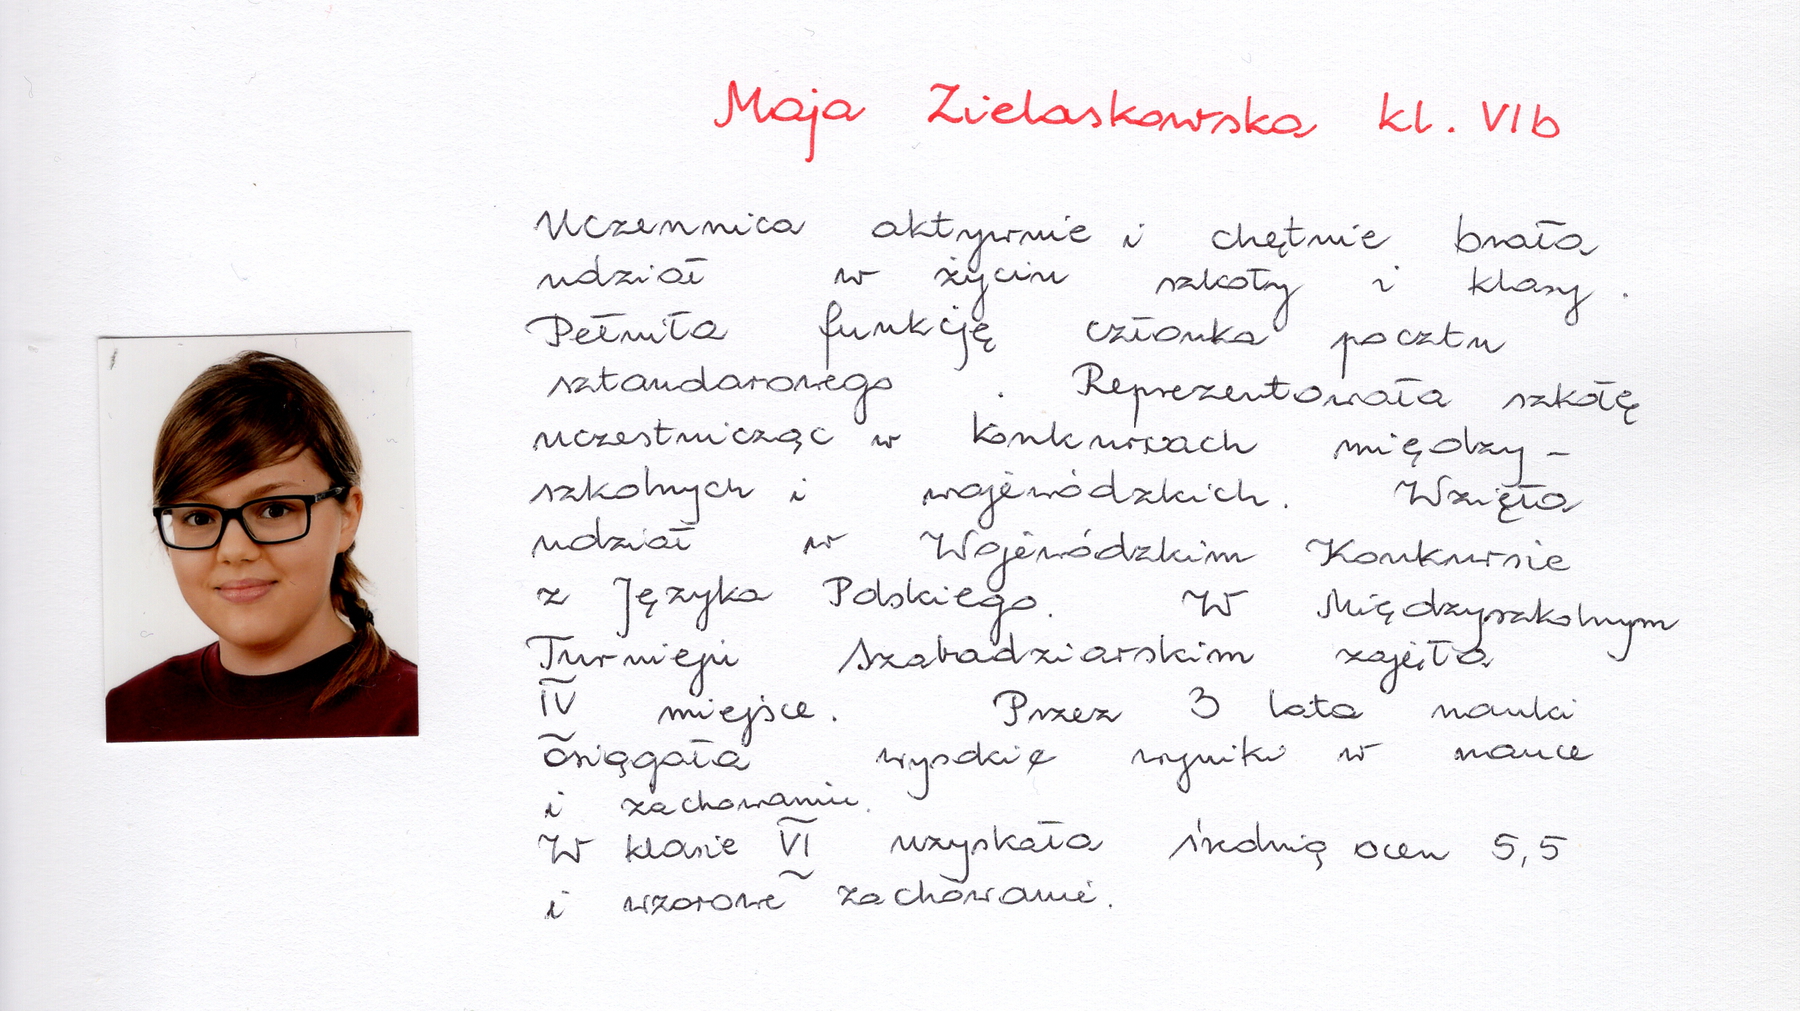 Maja Zielaskowska kl. VIb
Uczennica aktywnie i chętnie brała
udział w życiu szkoły i klasy.
Pełniła funkcję członka pocztu
sztandarowego. Reprezentowała szkołę
uczestnicząc w konkursach między-
szkolnych i wojewódzkich. Wzięła
udział w Wojewódzkim Konkursie
z Języka Polskiego. W Międzyszkolnym
Turnieju Szabadziarskim zajęła
IV miejsce. Przez 3 lata nauki
osiągała wysokie wyniki w nauce
i zachowaniu.
W klasie VI uzyskała średnią ocen 5,5
i wzorowe zachowanie.